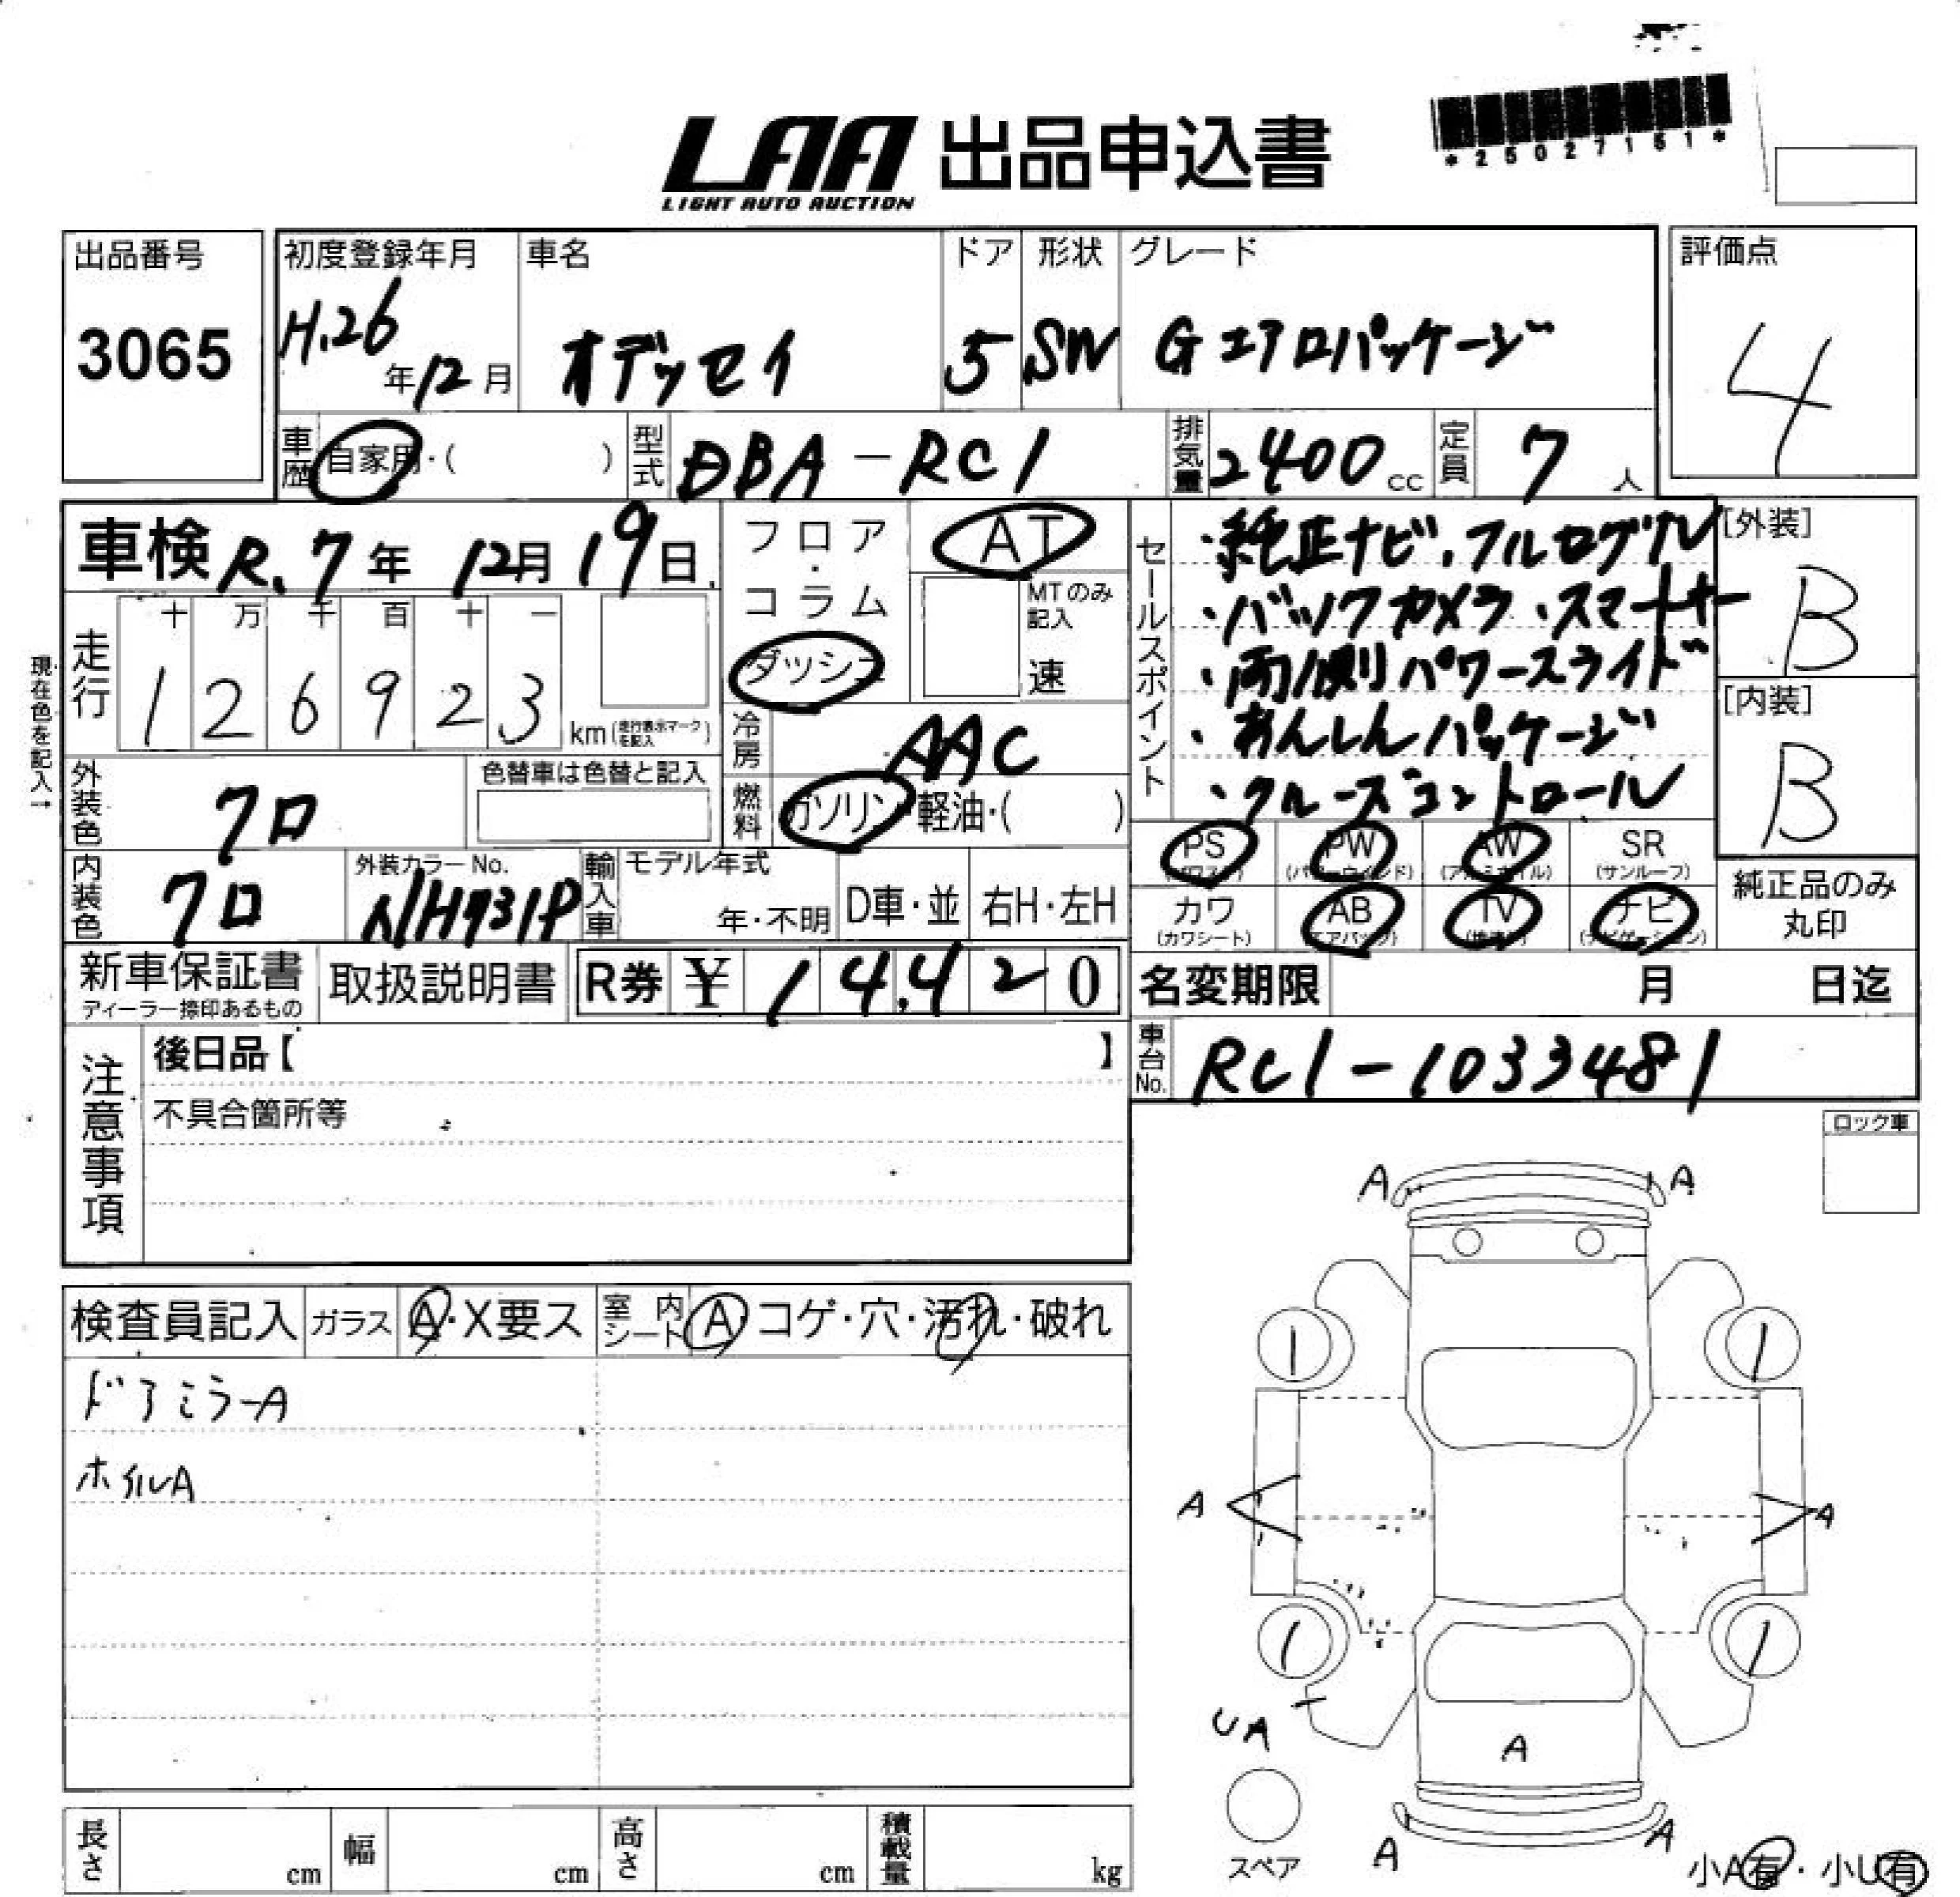 LAA 出品申込書
LIGHT AUTO AUCTION
*25027151*
出品番号
3065
初度登録年月
H.26年12月
車名
オデッセイ
ドア
5
形状
SW
グレード
Gエアロパッケージ
評価点
4
車歴
自家用・( )
型式
DBA-RC1
排気量
2400cc
定員
7人
車検 R.7年12月19日
フロア・コラム
ダッシュ
AT
MTのみ記入
速
セールスポイント
・純正ナビ、フルセグTV
・バックカメラ・スマートキー
・両側パワースライド
・あんしんパッケージ
・クルーズコントロール
[外装]
B
[内装]
B
現在色を記入→
走行
十万千百十一
126923
km(走行表示マークを記入)
冷房
AAC
燃料
ガソリン・軽油・( )
外装色
クロ
色替車は色替と記入
内装色
クロ
外装カラーNo.
NH731P
輸入車
モデル年式
年・不明
D車・並
右H・左H
PS
PW
AW
SR
(サンルーフ)
カワ
(カワシート)
AB
TV
ナビ
純正品のみ
丸印
新車保証書
ディーラー捺印あるもの
取扱説明書
R券 ¥ 14,420
名変期限 月 日迄
車台No.
RC1-1033481
注意事項
後日品【 】
不具合箇所等
ロック車
検査員記入
ガラス A・X要ス
室内シート A コゲ・穴・汚れ・破れ
ドアミラーA
ホイルA
A A
1 1
A A
1 1
UA
A
スペア
A A
小A有・小U有
長さ cm
幅 cm
高さ cm
積載量 kg